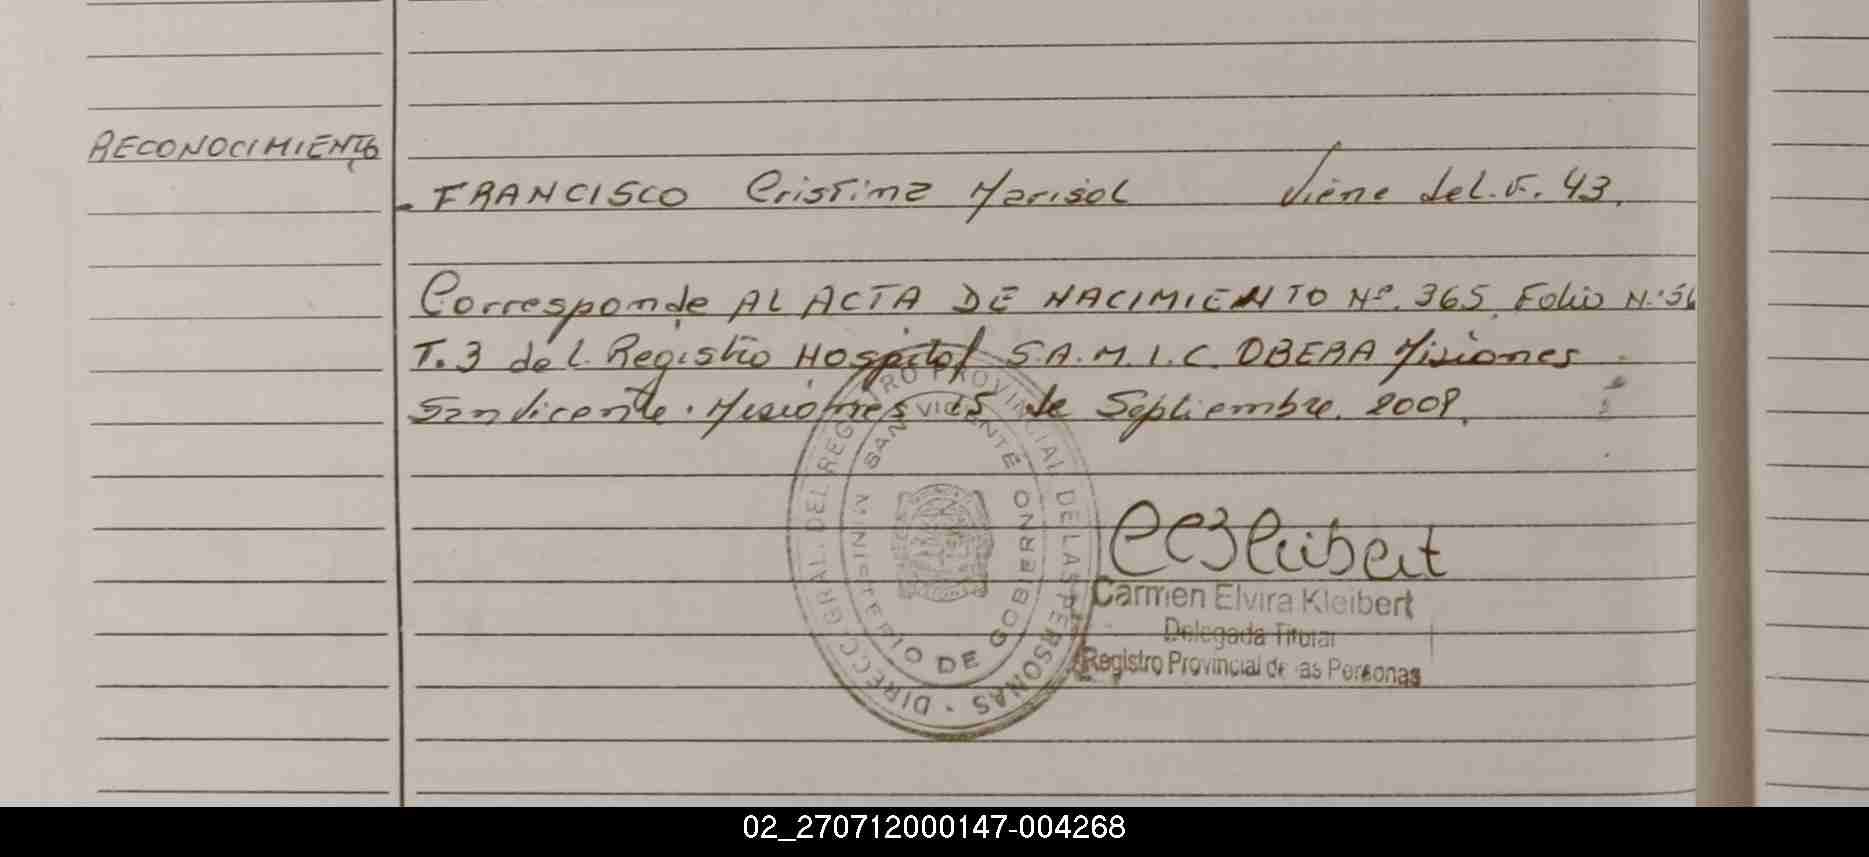 RECONOCIMIENTO
FRANCISCO Cristina Marisol Viene del. F. 43.
Corresponde AL ACTA DE NACIMIENTO Nº. 365. Folio N.º 56
T. 3 del Registro Hospital S.A.M.I.C. OBERA Misiones
San Vicente. Misiones 25 de Septiembre. 2009.
DIRECC. GRAL. DEL REGISTRO PROVINCIAL DE LAS PERSONAS -
SAN VICENTE
MINISTERIO DE GOBIERNO
Carmen Elvira Kleibert
Delegada Titular
Registro Provincial de las Personas
02_270712000147-004268